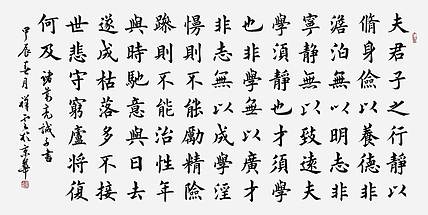 夫君子之行靜以
脩身儉以養德非
澹泊無以明志非
寧靜無以致遠夫
學須靜也才須學
也非學無以廣才
非志無以成學淫
慢則不能勵精險
躁則不能治性年
與時馳意與日去
遂成枯落多不接
世悲守窮廬將復
何及
諸葛亮誡子書
甲辰春月祥雲於京華